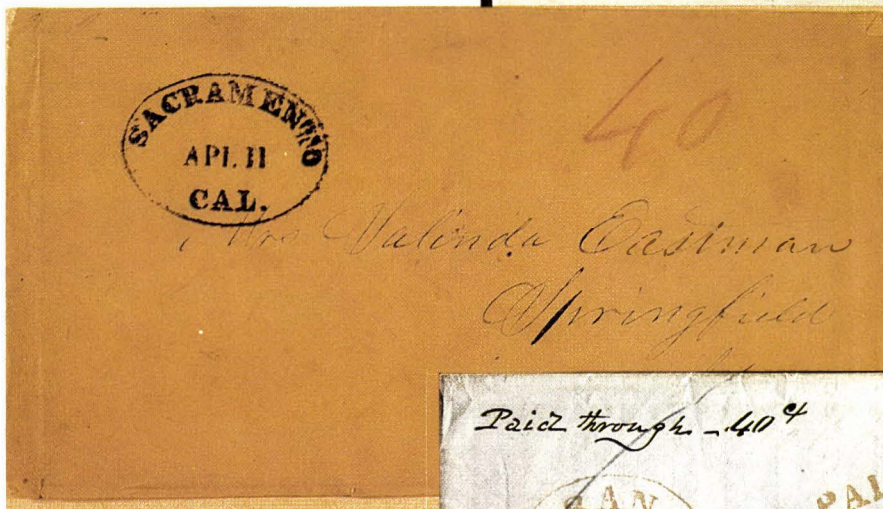 SACRAMENTO
APL 11
CAL.
40
Mrs Valinda Eastman
Springfield
Paid through - 40 ct
SAN
PAI